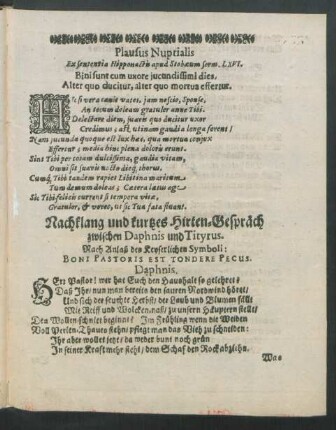 Plausus Nuptialis
Ex sententia Hipponactis apud Stobæum serm. LXVI.
Bini sunt cum uxore jucundissimi dies,
Alter quo ducitur, alter quo mortua effertur.
HÆc si vera canit vates, jam nescio, Sponse,
An tecum doleam gratuler anne Tibi.
Delectare diem, juaris quo ducitur uxor
Credimus; ast utinam gaudia longa forent!
Nam jucunda quoque est lux hæc, qua mortua conjux
Effertur; media hinc plena dolore erunt.
Sint Tibi per totam dulcissima, gaudia vitam,
Omni sit suavis nocte dieq; thorus.
Cumq; Tibi tandem rapiet Libitina maritam
Tum demum doleas; Cætera lætus age
Sic Tibi felicis current si tempora vitæ,
Gratuler, & vereor, ut sic Tua fata sinant.
Nachklang und kurtzes Hirten-Gespräch
zwischen Daphnis und Tityrus.
Nach Anlaß des Keyserlichen Symboli:
BONI PASTORIS EST TONDERE PECUS.
Daphnis.
HErr Pastor! wer hat Euch den Haushalt so gelehret?
Daß Ihr/ nun man bereits den sauren Nordwind höret/
Und sich der feuchte Herbst/ der Laub und Blumen fällt
Mit Reiff und Wolcken-naß/ zu unsern Häuptern stellt/
Den Wollen-schnitt beginnt? Im Frühling wenn die Weiden
Voll Perlen-Thaues stehn/ pflegt man das Vieh zu schneiden:
Ihr aber wollet jetzt/ da weder bunt noch grün
In seiner Krafft mehr steht/ dem Schaf den Rock abziehn.
Was